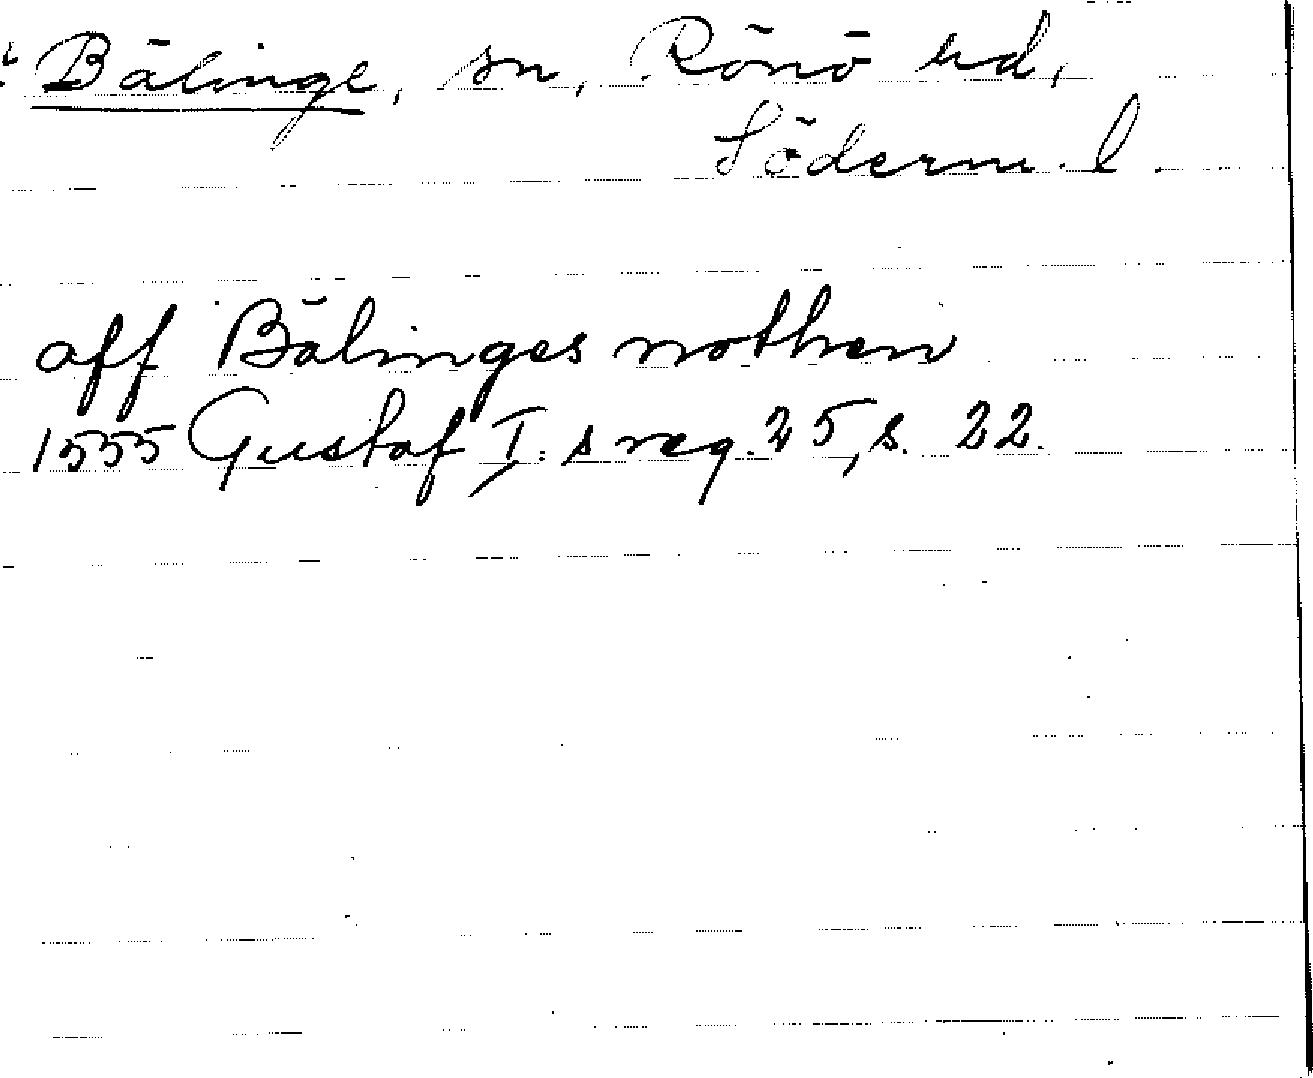 Bälinge, sn, Rönö hd,
Söderm. l.
aff Bälinges nothen
1555 Gustaf I:s reg. 25, s. 22.